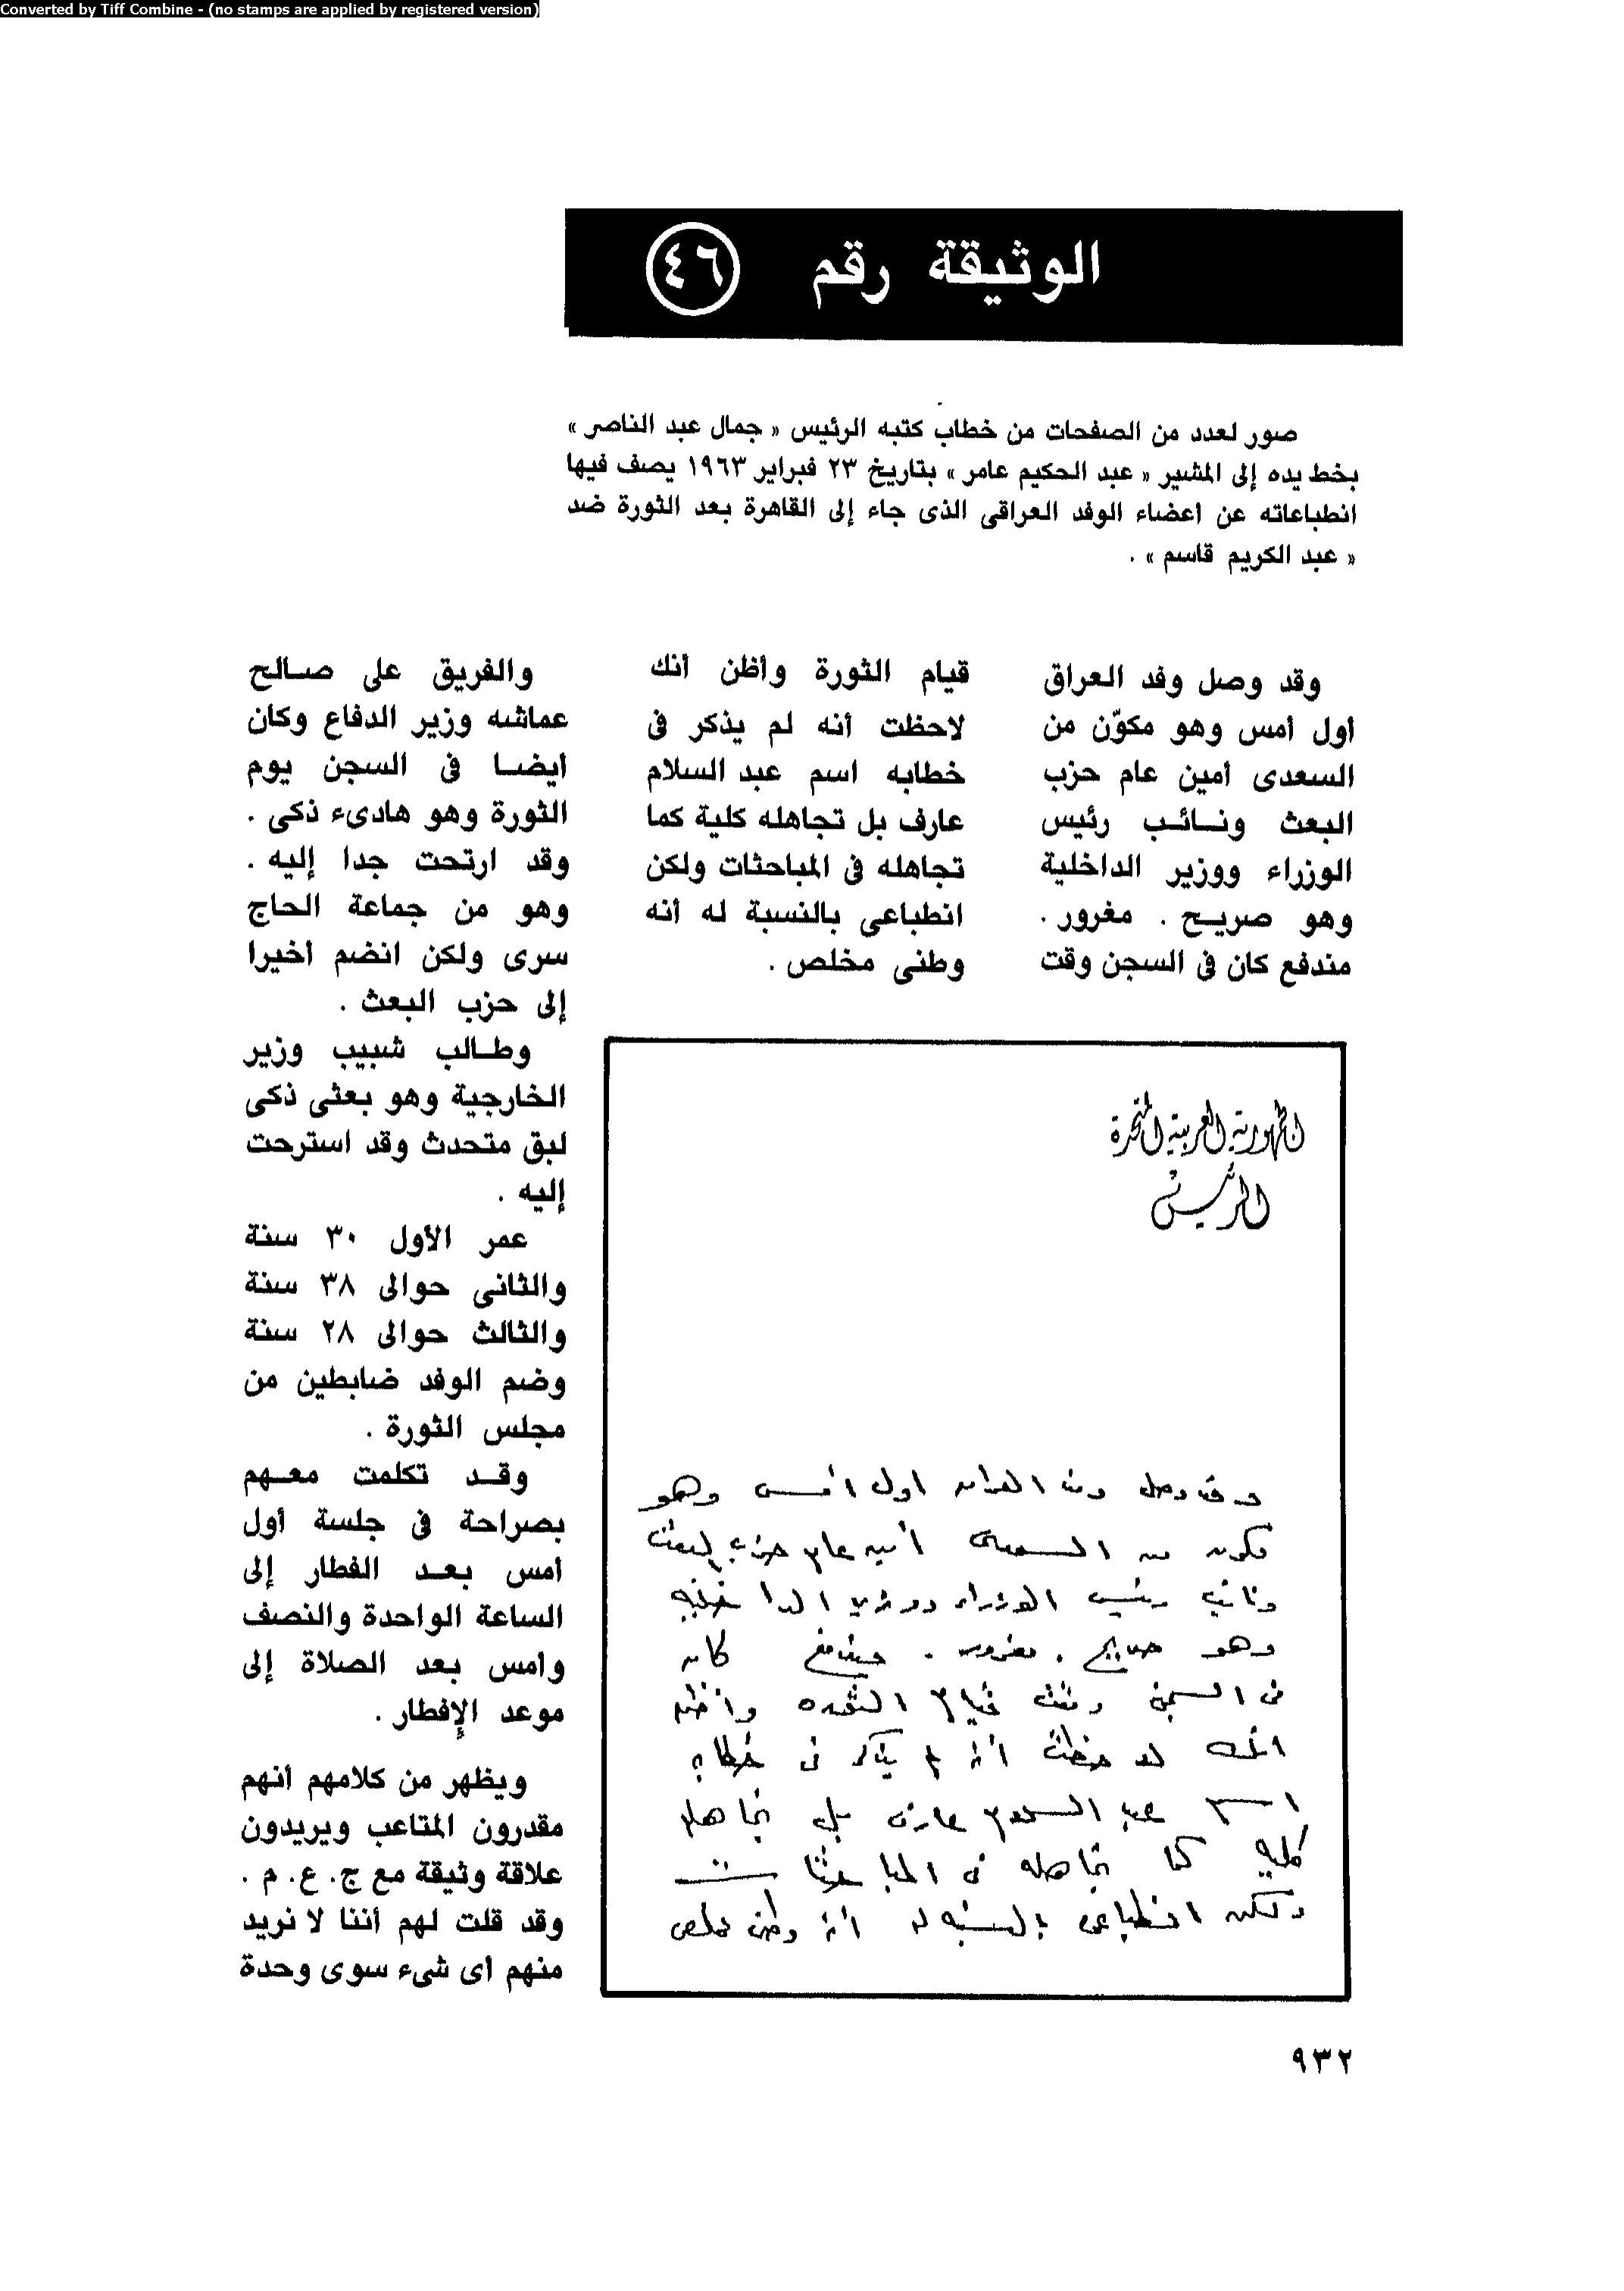 Converted by Tiff Combine - (no stamps are applied by registered version)
الوثيقة رقم ٤٦
صور لعدد من الصفحات من خطاب كتبه الرئيس « جمال عبد الناصر »
بخط يده إلى المشير « عبد الحكيم عامر » بتاريخ ٢٣ فبراير ١٩٦٣ يصف فيها
انطباعاته عن أعضاء الوفد العراقى الذى جاء إلى القاهرة بعد الثورة ضد
« عبد الكريم قاسم » .
وقد وصل وفد العراق
أول أمس وهو مكوّن من
السعدى أمين عام حزب
البعث ونائب رئيس
الوزراء ووزير الداخلية
وهو صريح . مغرور .
مندفع كان فى السجن وقت
قيام الثورة وأظن أنك
لاحظت أنه لم يذكر فى
خطابه اسم عبد السلام
عارف بل تجاهله كلية كما
تجاهله فى المباحثات ولكن
انطباعى بالنسبة له أنه
وطنى مخلص .
والفريق على صالح
عماشه وزير الدفاع وكان
أيضا فى السجن يوم
الثورة وهو هادىء ذكى .
وقد ارتحت جدا إليه .
وهو من جماعة الحاج
سرى ولكن انضم أخيرا
إلى حزب البعث .
وطالب شبيب وزير
الخارجية وهو بعثى ذكى
لبق متحدث وقد استرحت
إليه .
عمر الأول ٣٠ سنة
والثانى حوالى ٣٨ سنة
والثالث حوالى ٢٨ سنة
وضم الوفد ضابطين من
مجلس الثورة .
وقد تكلمت معهم
بصراحة فى جلسة أول
أمس بعد الفطار إلى
الساعة الواحدة والنصف
وأمس بعد الصلاة إلى
موعد الإفطار .
ويظهر من كلامهم أنهم
مقدرون المتاعب ويريدون
علاقة وثيقة مع ج . ع . م .
وقد قلت لهم أننا لا نريد
منهم أى شىء سوى وحدة
الجمهورية العربية المتحدة
الرئيس
وقد وصل وفد العراق اول أمس وهو
مكون من السعدى أمين عام حزب البعث
ونائب رئيس الوزراء ووزير الداخليه
وهو صريح . مغرور . مندفع كان
فى السجن وقت قيام الثوره وأظن
انك لاحظت أنه لم يذكر فى خطابه
اسم عبد السلام عارف بل تجاهله
كليه كما تجاهله فى المباحثات
ولكن انطباعى بالنسبه له أنه وطنى مخلص
٩٣٢